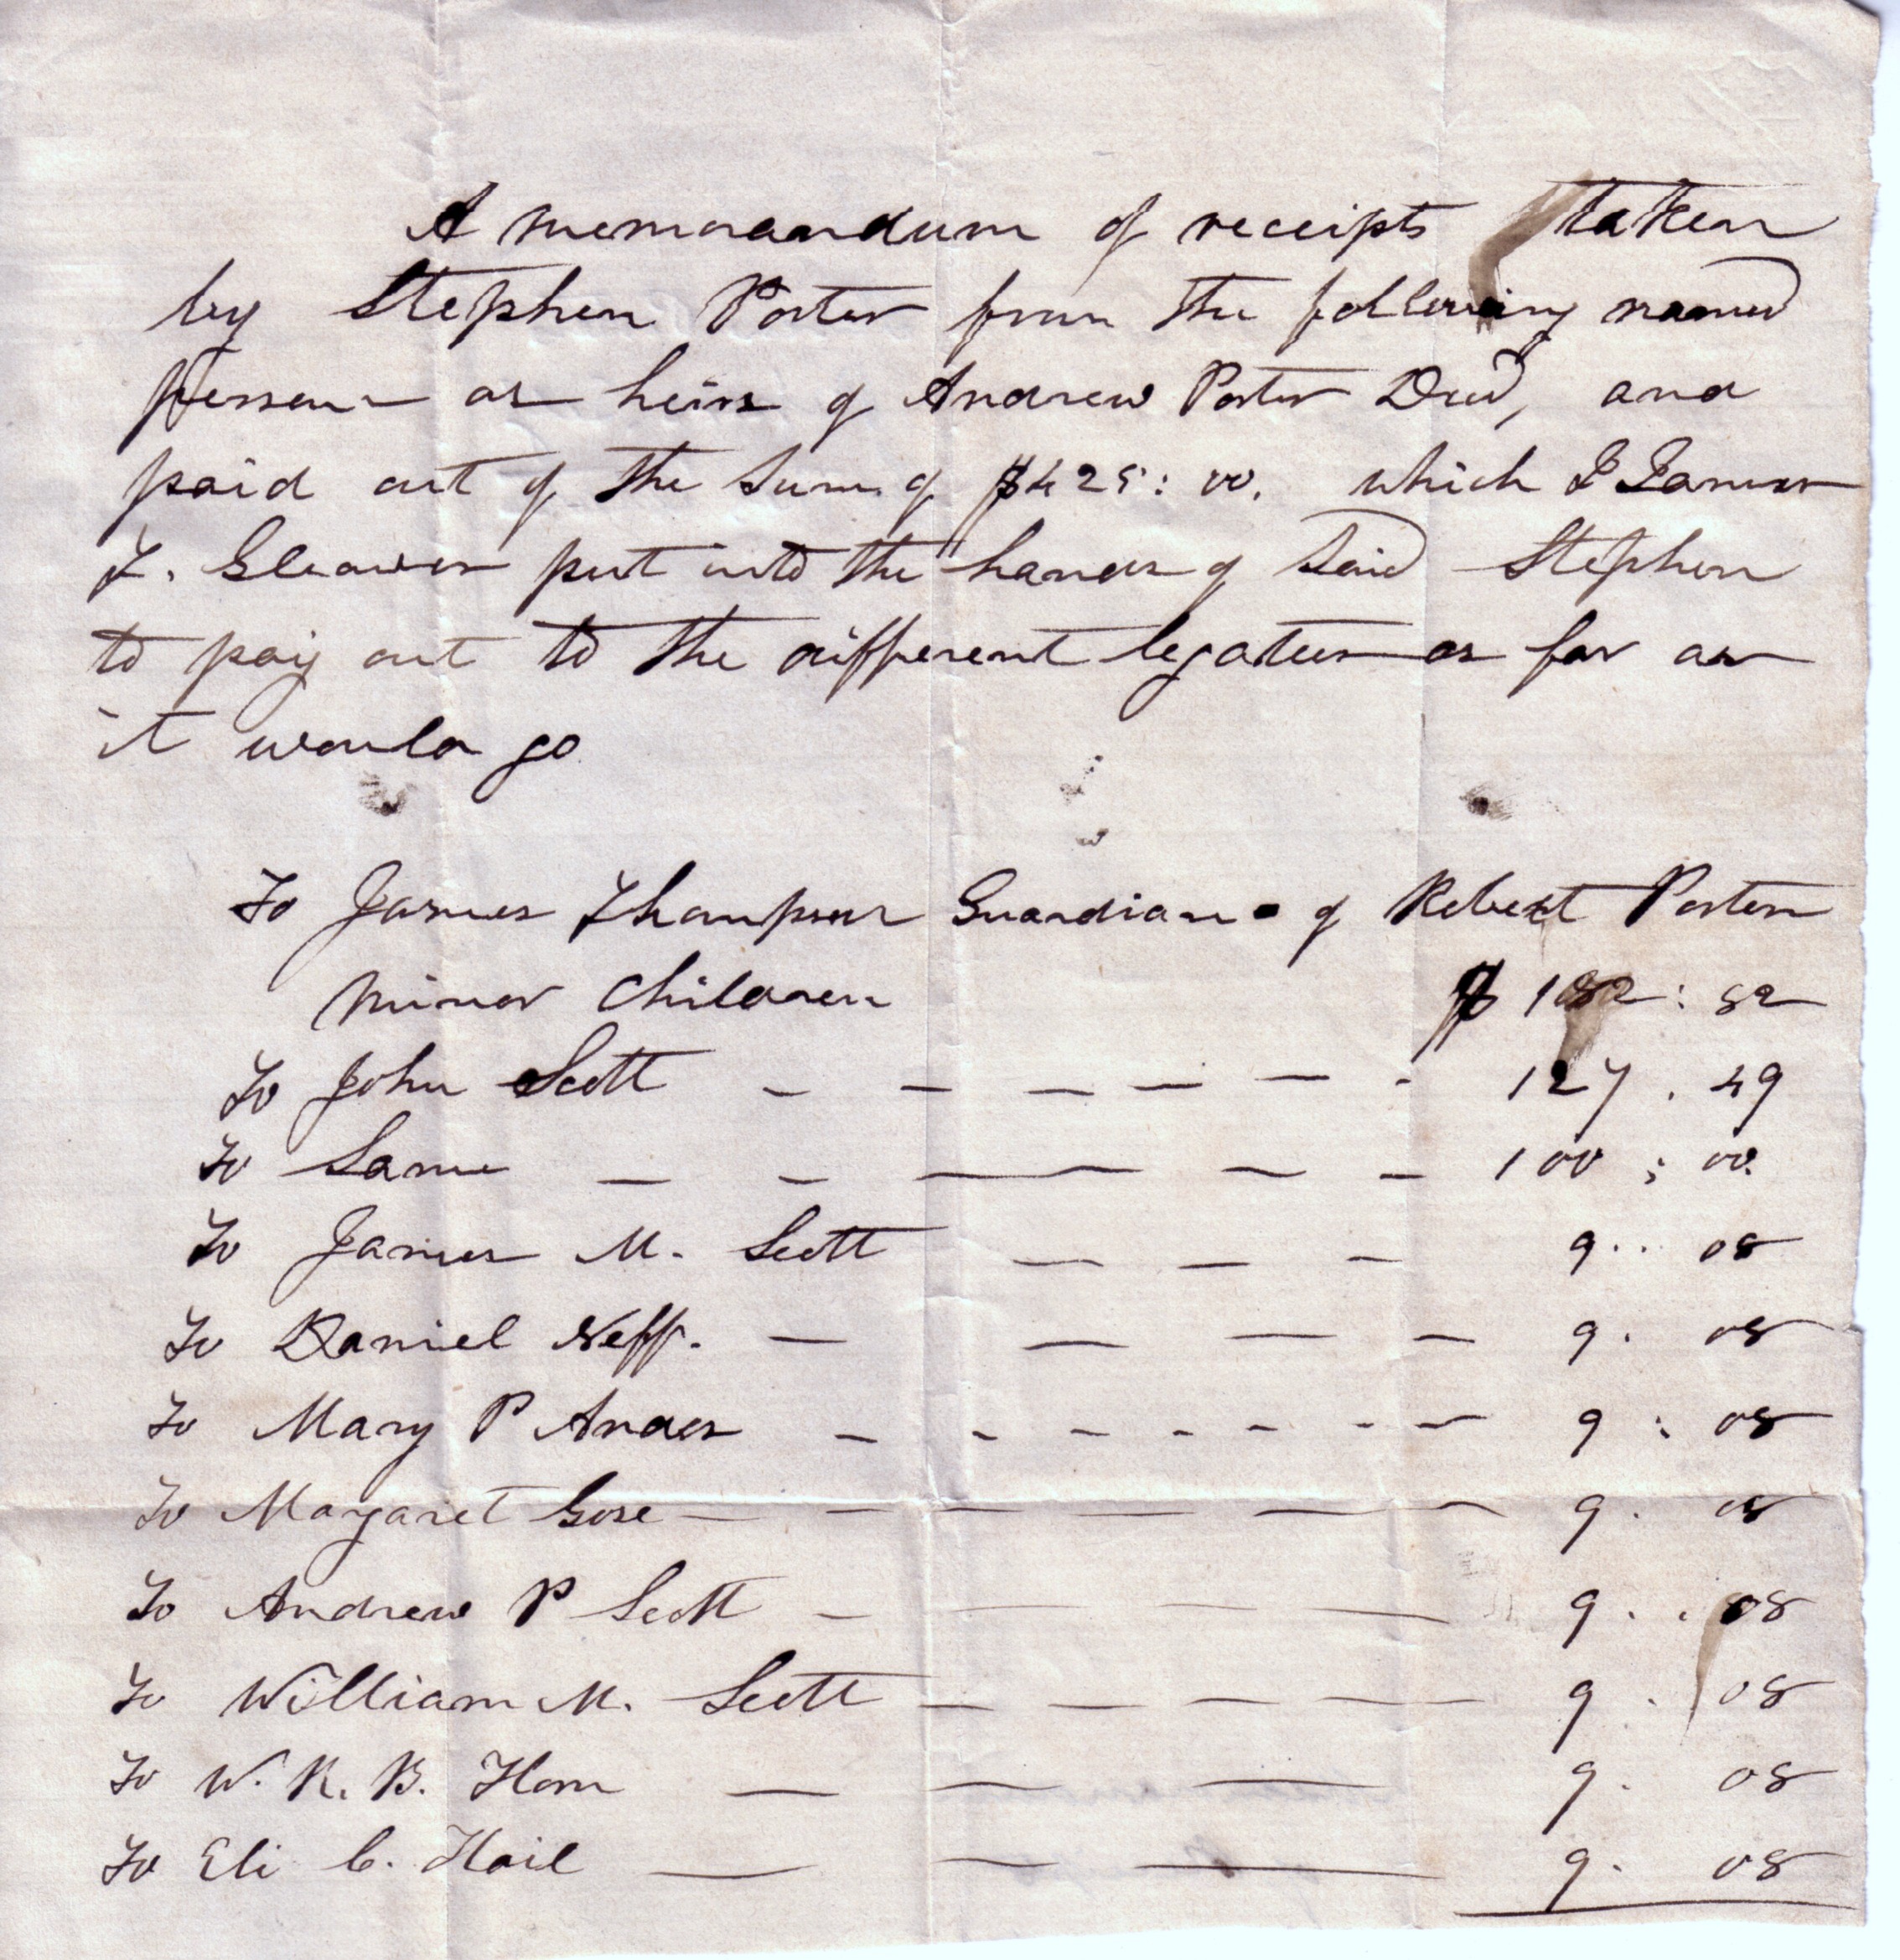 A memorandum of receipts taken
by Stephen Porter from the following named
persons as heirs of Andrew Porter Decd, and
paid out of the Sum of $425:00. which I James
T. Gleaves put into the hands of Said Stephen
to pay out to the different legatees as far as
it would go
To James Thompson Guardian of Robert Porters
minor Children $182:82
To John Scott — — — — — - 127.49
To Same — — — — — 100:00.
To James M. Scott — — — 9..08
To Daniel Neff. — — — — 9.08
To Mary P Andes — - - - - - — 9:08
To Margaret Gose — — — — — 9.08
To Andrew P Scott — — — — 9..08
To William M. Scott — — — — — 9.08
To W. R. B. Horn — — — 9.08
To Eli C. Hail — — — 9.08